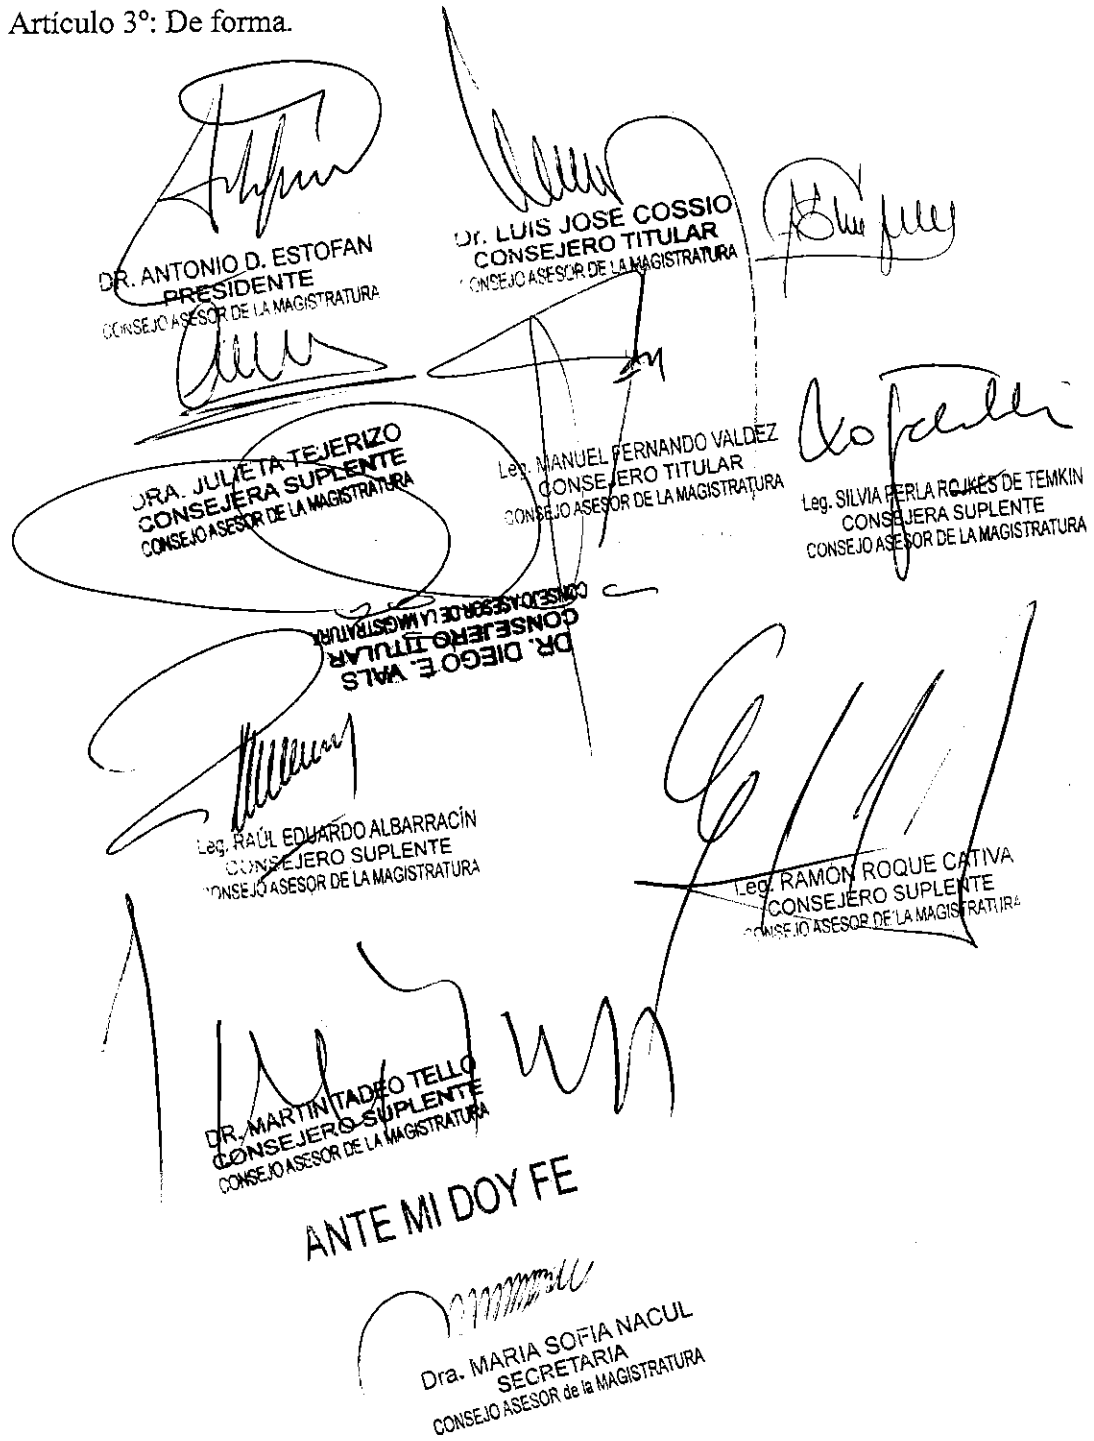 Artículo 3º: De forma.
DR. ANTONIO D. ESTOFAN
PRESIDENTE
CONSEJO ASESOR DE LA MAGISTRATURA
Dr. LUIS JOSE COSSIO
CONSEJERO TITULAR
CONSEJO ASESOR DE LA MAGISTRATURA
DRA. JULIETA TEJERIZO
CONSEJERA SUPLENTE
CONSEJO ASESOR DE LA MAGISTRATURA
Leg. MANUEL FERNANDO VALDEZ
CONSEJERO TITULAR
CONSEJO ASESOR DE LA MAGISTRATURA
Leg. SILVIA PERLA ROJKÉS DE TEMKIN
CONSEJERA SUPLENTE
CONSEJO ASESOR DE LA MAGISTRATURA
DR. DIEGO E. VALS
CONSEJERO TITULAR
CONSEJO ASESOR DE LA MAGISTRATURA
Leg. RAÚL EDUARDO ALBARRACÍN
CONSEJERO SUPLENTE
CONSEJO ASESOR DE LA MAGISTRATURA
Leg. RAMÓN ROQUE CATIVA
CONSEJERO SUPLENTE
CONSEJO ASESOR DE LA MAGISTRATURA
DR. MARTIN TADEO TELLO
CONSEJERO SUPLENTE
CONSEJO ASESOR DE LA MAGISTRATURA
ANTE MI DOY FE
Dra. MARIA SOFIA NACUL
SECRETARIA
CONSEJO ASESOR de la MAGISTRATURA